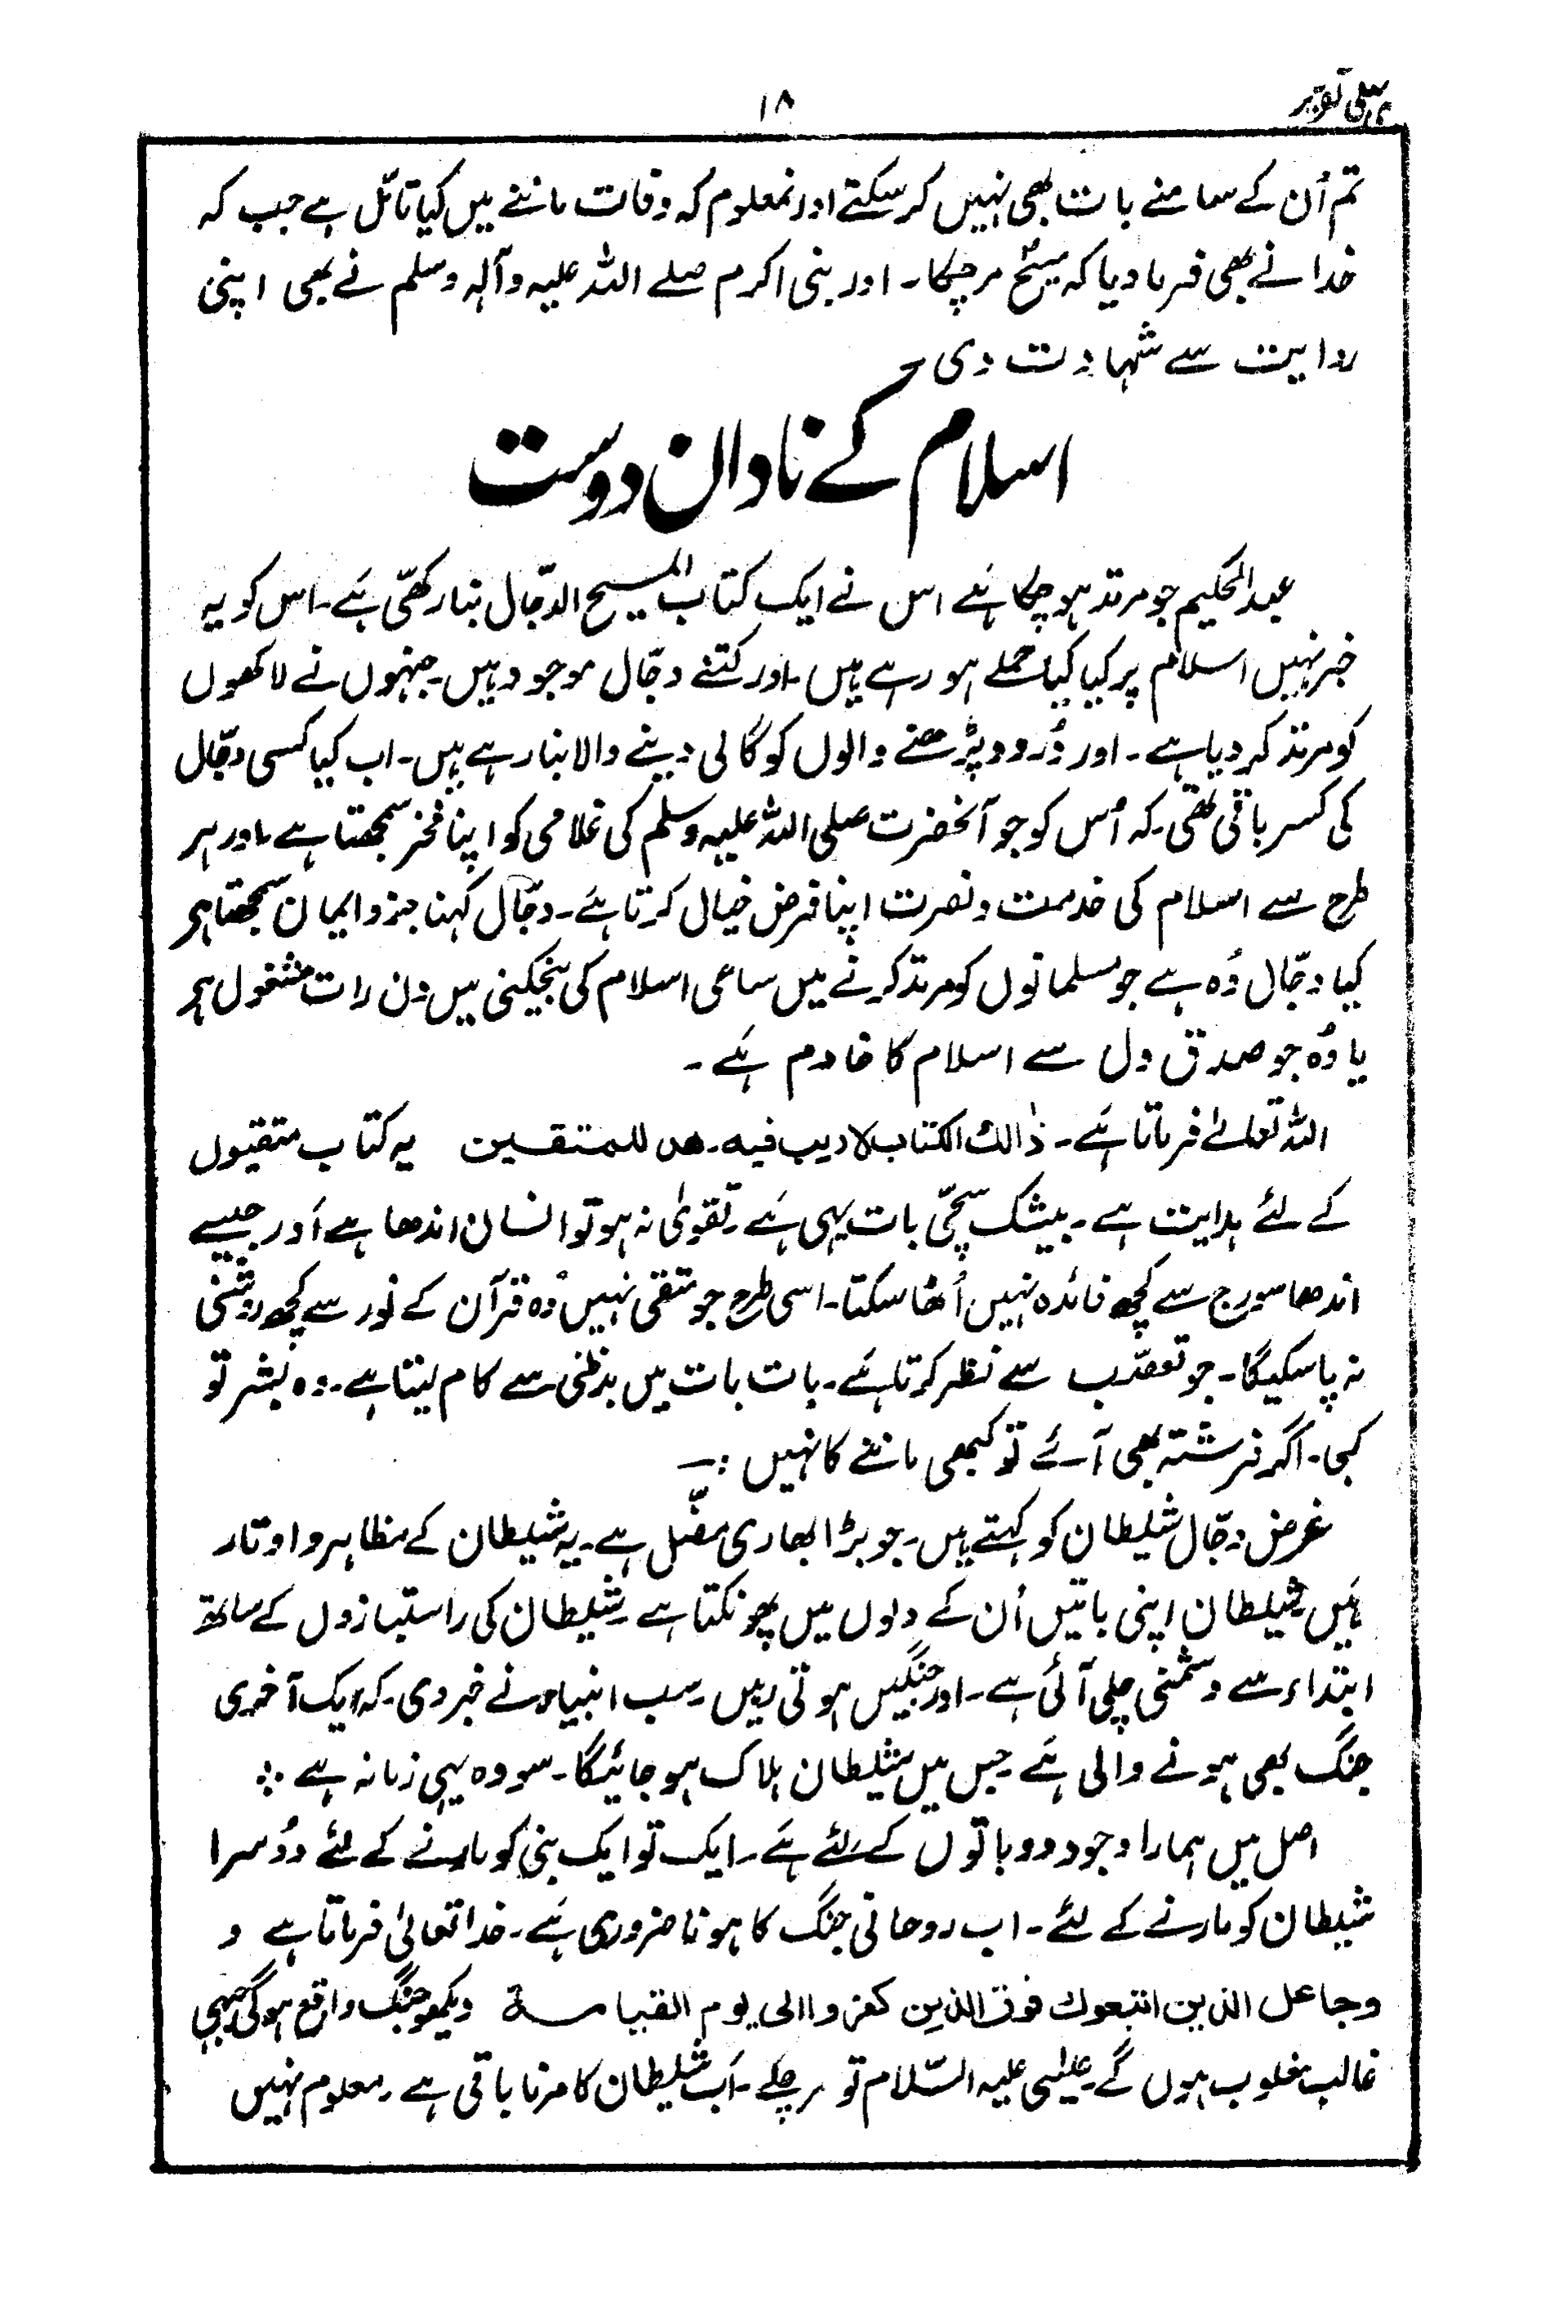 پہلی تقریر
۱۸
تم اُن کے سامنے بات بھی نہیں کر سکتے اور نمعلوم کہ وفات ماننے میں کیا تامّل ہے جب کہ
خدا نے بھی فرما دیا کہ مسیح مر چکا۔ اور نبی اکرم صلے اللہ علیہ وآلہ وسلم نے بھی اپنی
روایت سے شہادت دی۔
اسلام کے نادان دوست
عبدالحکیم جو مرتد ہو چکا ہَے اس نے ایک کتاب المسیح الدجّال بنا رکھّی ہَے۔ اس کو یہ
خبر نہیں اسلام پر کیا کیا حملے ہو رہے ہیں۔ اور کتنے دجّال موجود ہیں۔ جنہوں نے لاکھوں
کو مرتد کر دیا ہے۔ اور دُرود پڑھنے والوں کو گالی دینے والا بنا رہے ہیں۔ اب کیا کسی دجّال
کی کسر باقی تھی۔ کہ اُس کو جو آنحضرت صلی اللہ علیہ وسلم کی غلامی کو اپنا فخر سمجھتا ہے۔ اور ہر
طرح سے اسلام کی خدمت و نصرت اپنا فرض خیال کرتا ہَے۔ دجّال کہنا جزو ایمان سمجھتا ہے
کیا دجّال وُہ ہے جو مسلمانوں کو مرتد کرنے میں ساعی اسلام کی بیخکنی میں دن رات مشغول ہے
یا وُہ جو صدق دل سے اسلام کا خادم ہَے۔
اللہ تعالےٰ فرماتا ہَے۔ ذٰالك الكتاب لا ريب فيه۔ هدى للمتقين یہ کتاب متقیوں
کے لئے ہدایت ہے۔ بیشک سچّی بات یہی ہَے۔ تقویٰ نہ ہو تو انسان اندھا ہے اَور جیسے
اندھا سورج سے کچھ فائدہ نہیں اُٹھا سکتا۔ اسی طرح جو متقی نہیں وُہ قرآن کے نور سے کچھ روشنی
نہ پا سکیگا۔ جو تعصّب سے نظر کرتا ہَے۔ بات بات میں بدظنی سے کام لیتا ہے۔ وہ بشر تو
کیا۔ اگر فرشتہ بھی آئے تو کبھی ماننے کا نہیں :۔
غرض دجّال شیطان کو کہتے ہیں۔ جو بڑا بھاری مضّل ہے۔ یہ شیطان کے مظاہر و اوتار
ہَیں شیطان اپنی باتیں اُن کے دلوں میں پھونکتا ہے۔ شیطان کی راستبازوں کے ساتھ
ابتداء سے دشمنی چلی آئی ہے۔ اور جنگیں ہوتی رہیں۔ سب انبیاء نے خبر دی۔ کہ ایک آخری
جنگ بھی ہونے والی ہَے جس میں شیطان ہلاک ہو جائیگا۔ سو وہ یہی زمانہ ہے ؞
اصل میں ہمارا وجود دو باتوں کے لئے ہَے۔ ایک تو ایک نبی کو مارنے کے لئے دوُسرا
شیطان کو مارنے کے لئے۔ اب روحانی جنگ کا ہونا ضروری ہَے۔ خدا تعالیٰ فرماتا ہے و
وجاعل الذين اتبعوك فوق الذين كفروا الى يوم القيامة دیکھو جنگ واقع ہوگی جبھی
غالب مغلوب ہوں گے۔ عیلٰسی علیہ السّلام تو مر چکے۔ اَب شیطان کا مرنا باقی ہے۔ معلوم نہیں